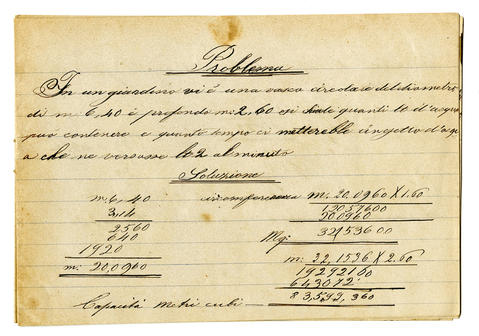 Problema
In un giardino vi è una vasca circolare del diametro
di m. 6,40 è profondo m: 2,60 si quanti lt d'acqua
può contenere e quanto tempo ci metterebbe un getto d'acqu
a che ne versasse lt 2 al minuto
Soluzione
m: 6,40 circonferenza m. 20,0960 X 1.60
3,14 12057600
2560 200960
640 Mq: 32153600
1920 m: 32,1536 X 2.60
m: 20,0960 19292100
643072
Capacità metri cubi — 83,599,360